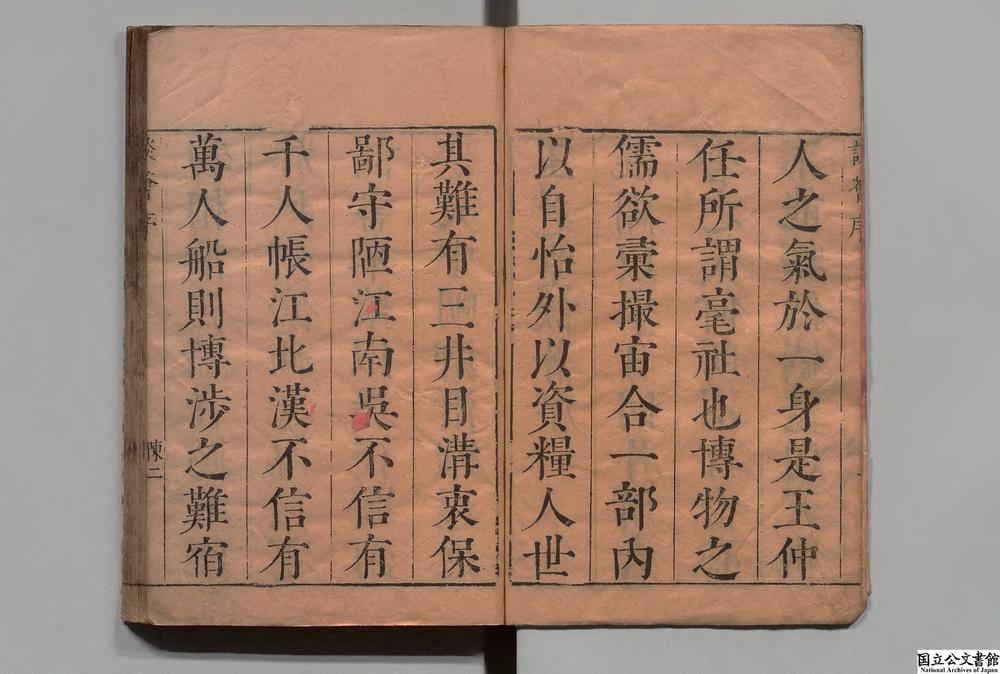 人之氣於一身是王仲
任所謂毫社也博物之
儒欲彙撮宙合一部內
以自怡外以資糧人世
其難有三井目溝衷保
鄙守陋江南吳不信有
千人帳江北漢不信有
萬人船則博涉之難宿
陳二
国立公文書館
National Archives of Japan